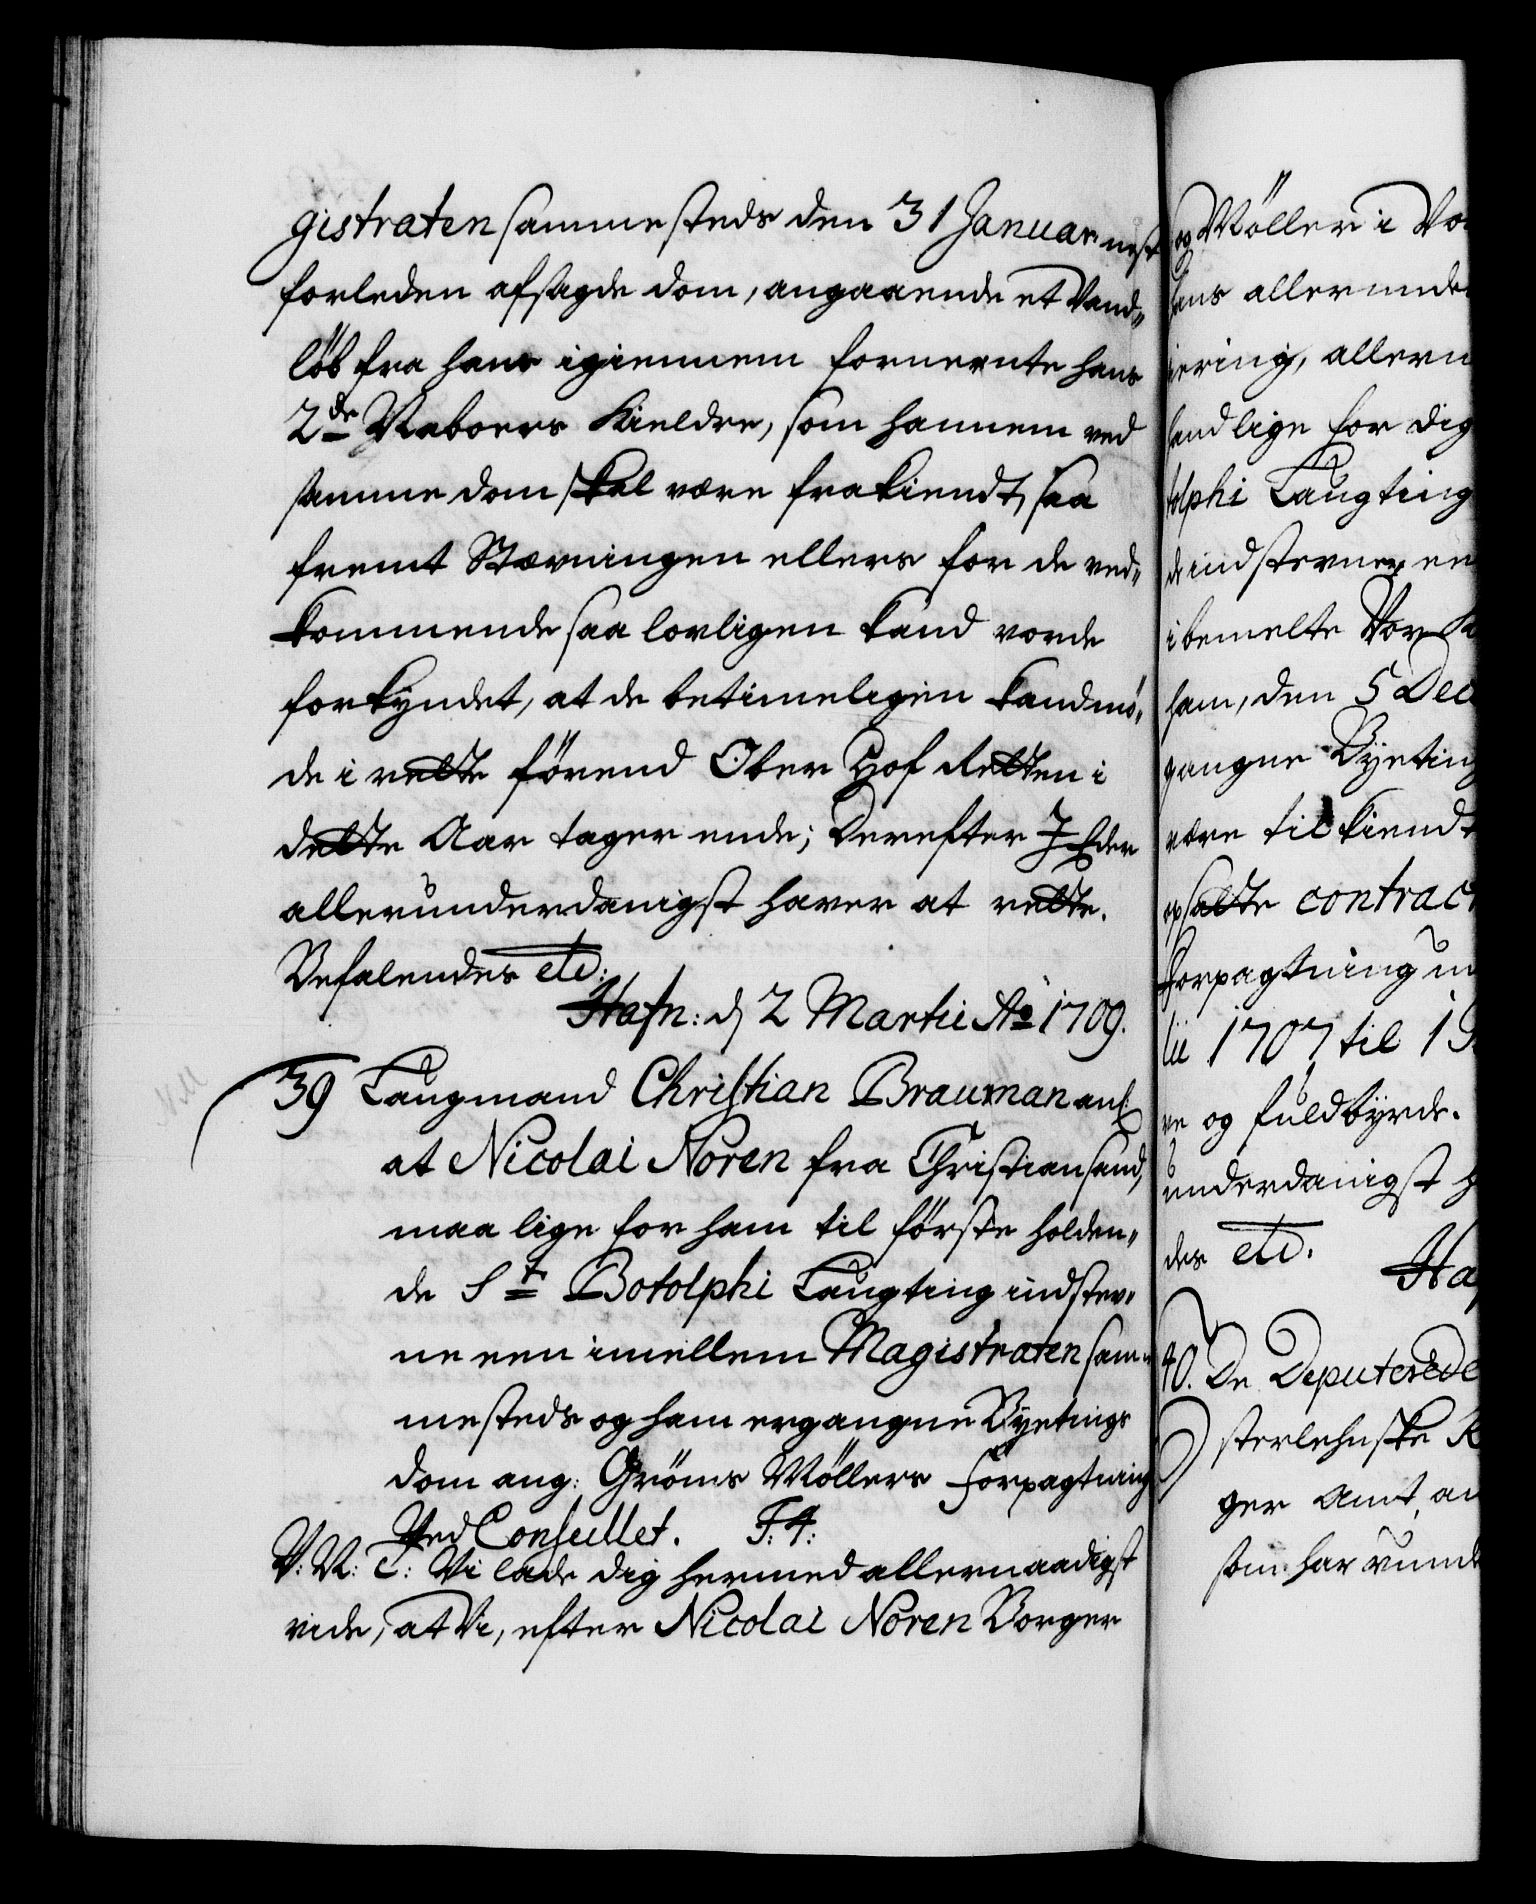 gistraten sammesteds den 31 Januar nest
forleden afsagde dom, angaaende et Vand-
løb fra hans igiennem fornevnte hans
2de Naboers Kieldre, som hannem ved
samme dom skal være frakiendt, saa
fremt Stævningen ellers for de ved-
kommende saa lovligen kand vorde
forkyndet, at de betimeligen kand mø-
de i rette førend Ober Hof Retten i
dette Aar tager ende; Derefter I Eder
allerunderdanigst haver at rette.
Befalendes etc:
Hafn: d 2 Martii Ao 1709.
39 Laugmand Christian Brauman anl:
at Nicolai Noren fra Christiansand,
maa lige for ham til første holden-
de St Botolphi Laugting indstev-
ne een imellem Magistraten sam-
mesteds og ham ergangne Byetings
dom ang: Grøms Møllers Forpagtning
Ved Conseillet. F: 4:
V: N: T: Vi lade dig hermed allernaadigst
vide, at Vi, efter Nicolai Noren Borger
og Møller i
hans
allern
lige for dig
Laugting
indsterner en
ibemelte Vor
ham, den 5 Dec
gangne Byeting
være tilkiendt
opsatte contract
Forpagtning
lii 1707 til 1
re og fuldbyrde.
underdanigst
des etc.
Ha
40. De Deputerede
sterlehnske R
ger Amt, an
som har